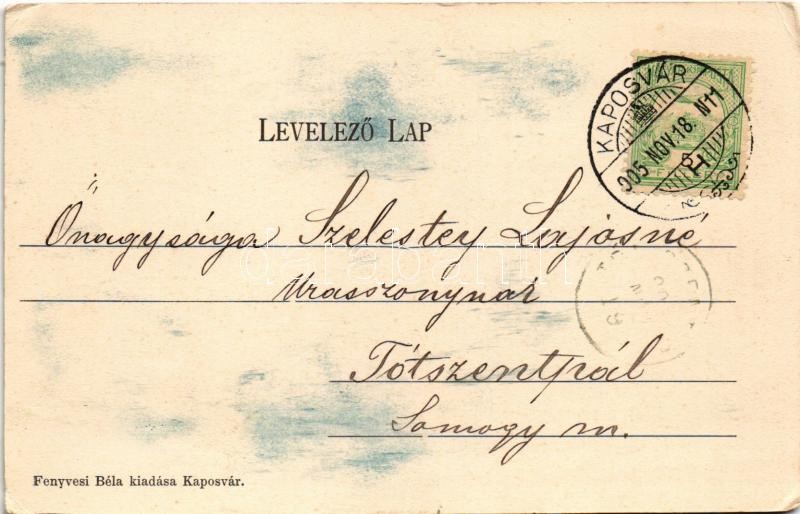 LEVELEZŐ LAP
KAPOSVÁR
905 NOV. 18. N11
H
Őnagysága Szelestey Lajosné
Úrasszonynak
Tótszentpál
Somogy m.
Fenyvesi Béla kiadása Kaposvár.